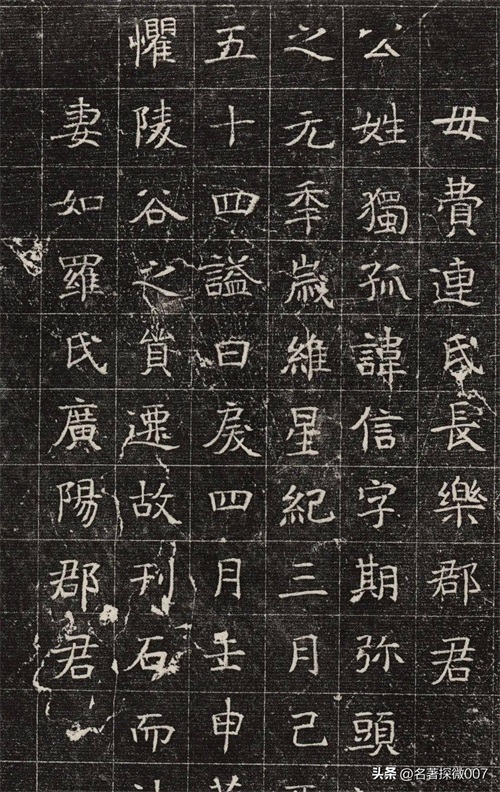 毋費連氏長樂郡君
公姓獨孤諱信字期弥頭
之元秊歲維星紀三月己
五十四謚曰戾四月壬申
懼陵谷之貿遷故刊石而
妻如羅氏廣陽郡君
头条 @名著探微007